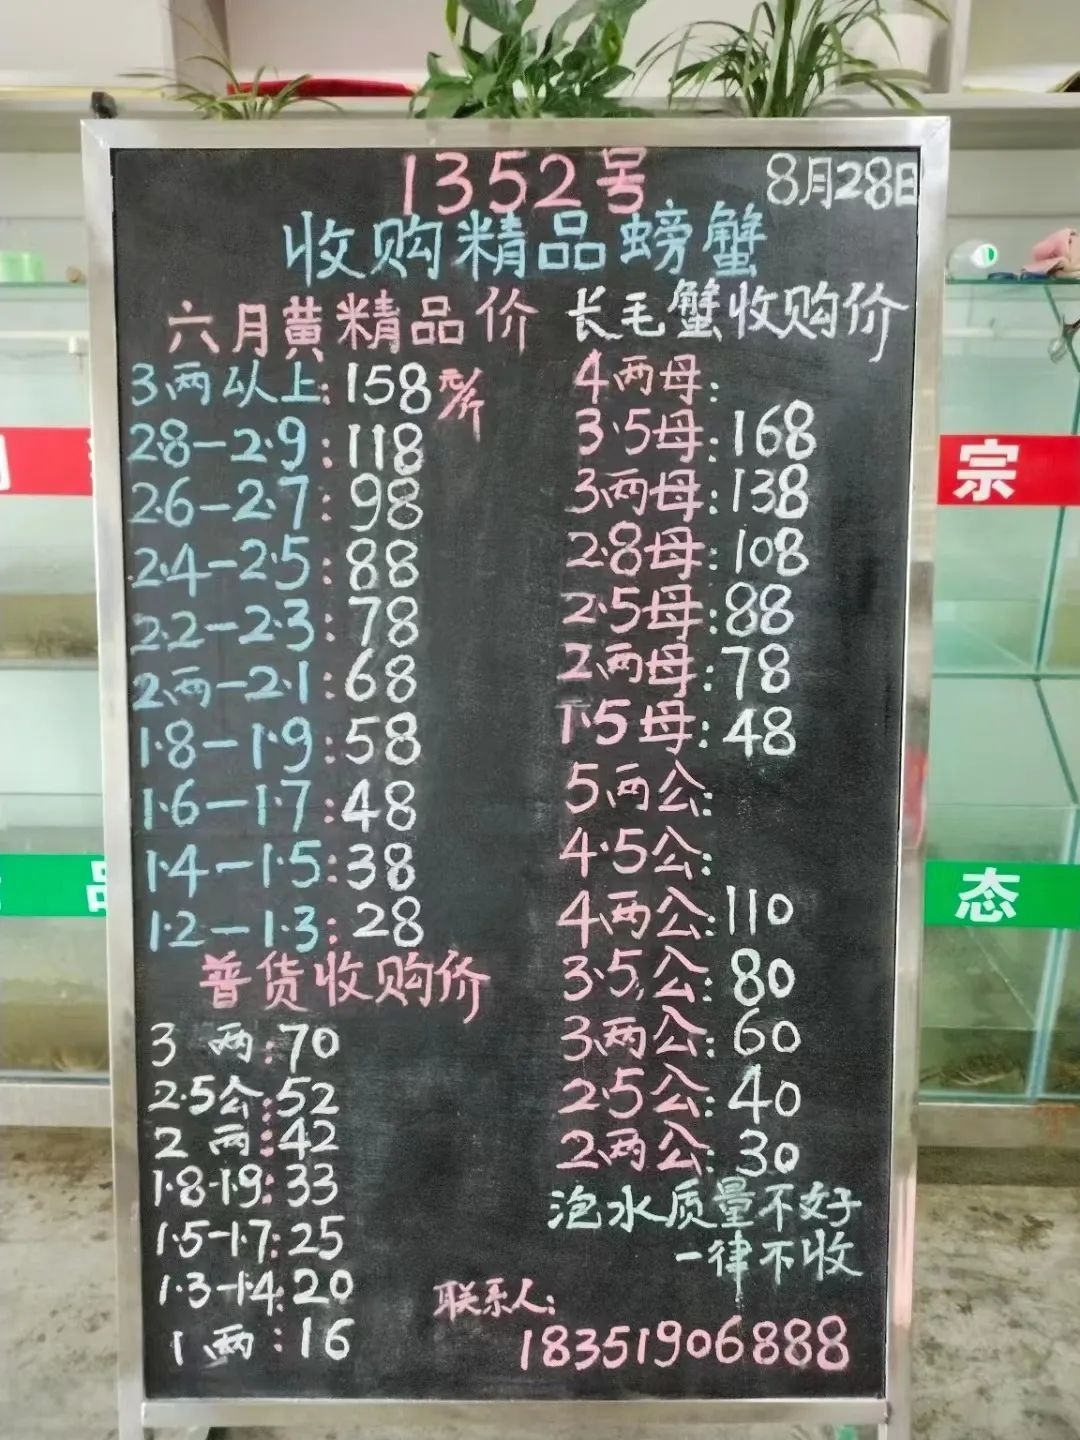 1352号
8月28日
收购精品螃蟹
六月黄精品价
3两以上:158元/斤
2.8—2.9:118
2.6—2.7:98
2.4—2.5:88
2.2—2.3:78
2两—2.1:68
1.8—1.9:58
1.6—1.7:48
1.4—1.5:38
1.2—1.3:28
普货收购价
3 两:70
2.5公:52
2 两:42
1.8-1.9:33
1.5-1.7:25
1.3-1.4:20
1两:16
长毛蟹收购价
4两母:
3.5母:168
3两母:138
2.8母:108
2.5母:88
2两母:78
1.5母:48
5两公:
4.5公:
4两公:110
3.5公:80
3两公:60
2.5公:40
2两公:30
泡水质量不好
一律不收
联系人:
18351906888
宗
态
品